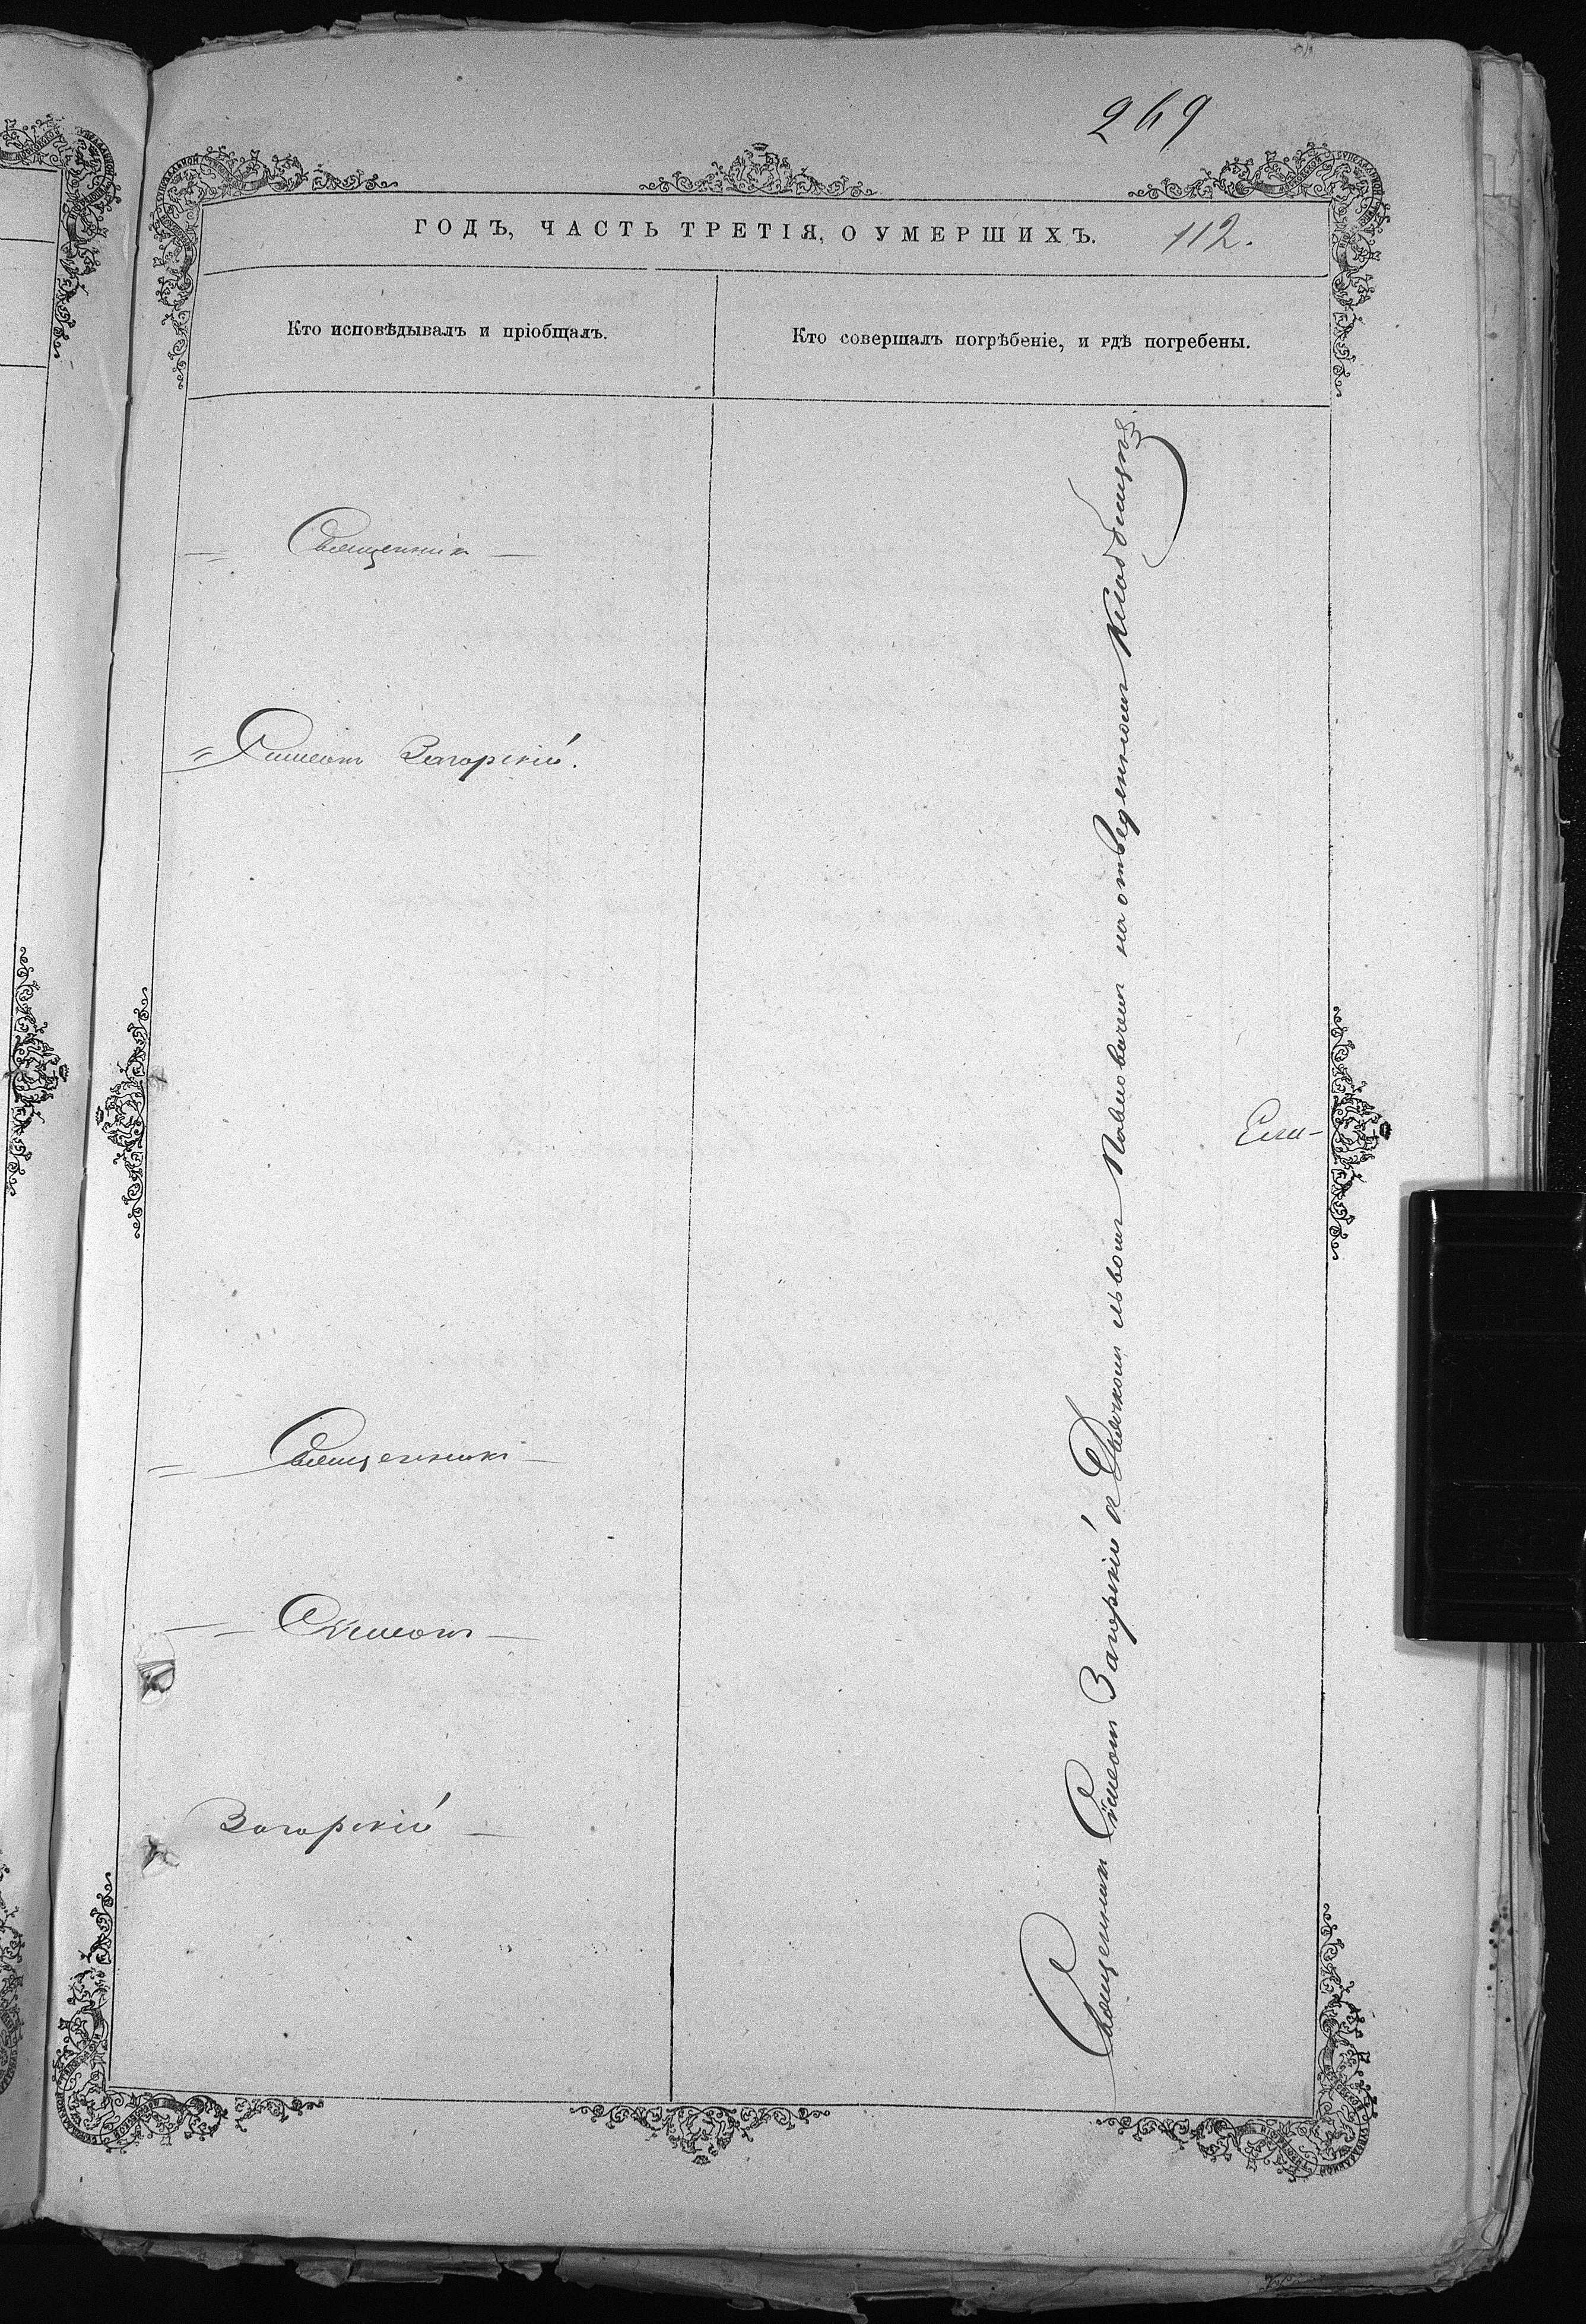 269
ГОДЪ, ЧАСТЬ ТРЕТІЯ, О УМЕРШИХЪ. 112.
Кто исповѣдывалъ и пріобщалъ.
Кто совершалъ погрѣбеніе, и гдѣ погребены.
Священникъ
Симеонъ Загорскій.
Священникъ
Сѵмеонъ
Загорскій
Священникъ Сѵмеонъ Загорскій с Дьячкомъ Львомъ на отведенномъ Кладбищѣ